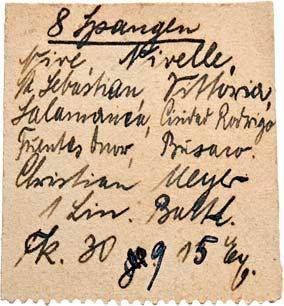 8 Spangen
Nive Nivelle,
St. Sebastian, Vittoria,
Salamanca, Ciudad Rodrigo
Fuentes Onor, Busaco.
Christian Meyer
1 Lin. Batl.
30 9 15